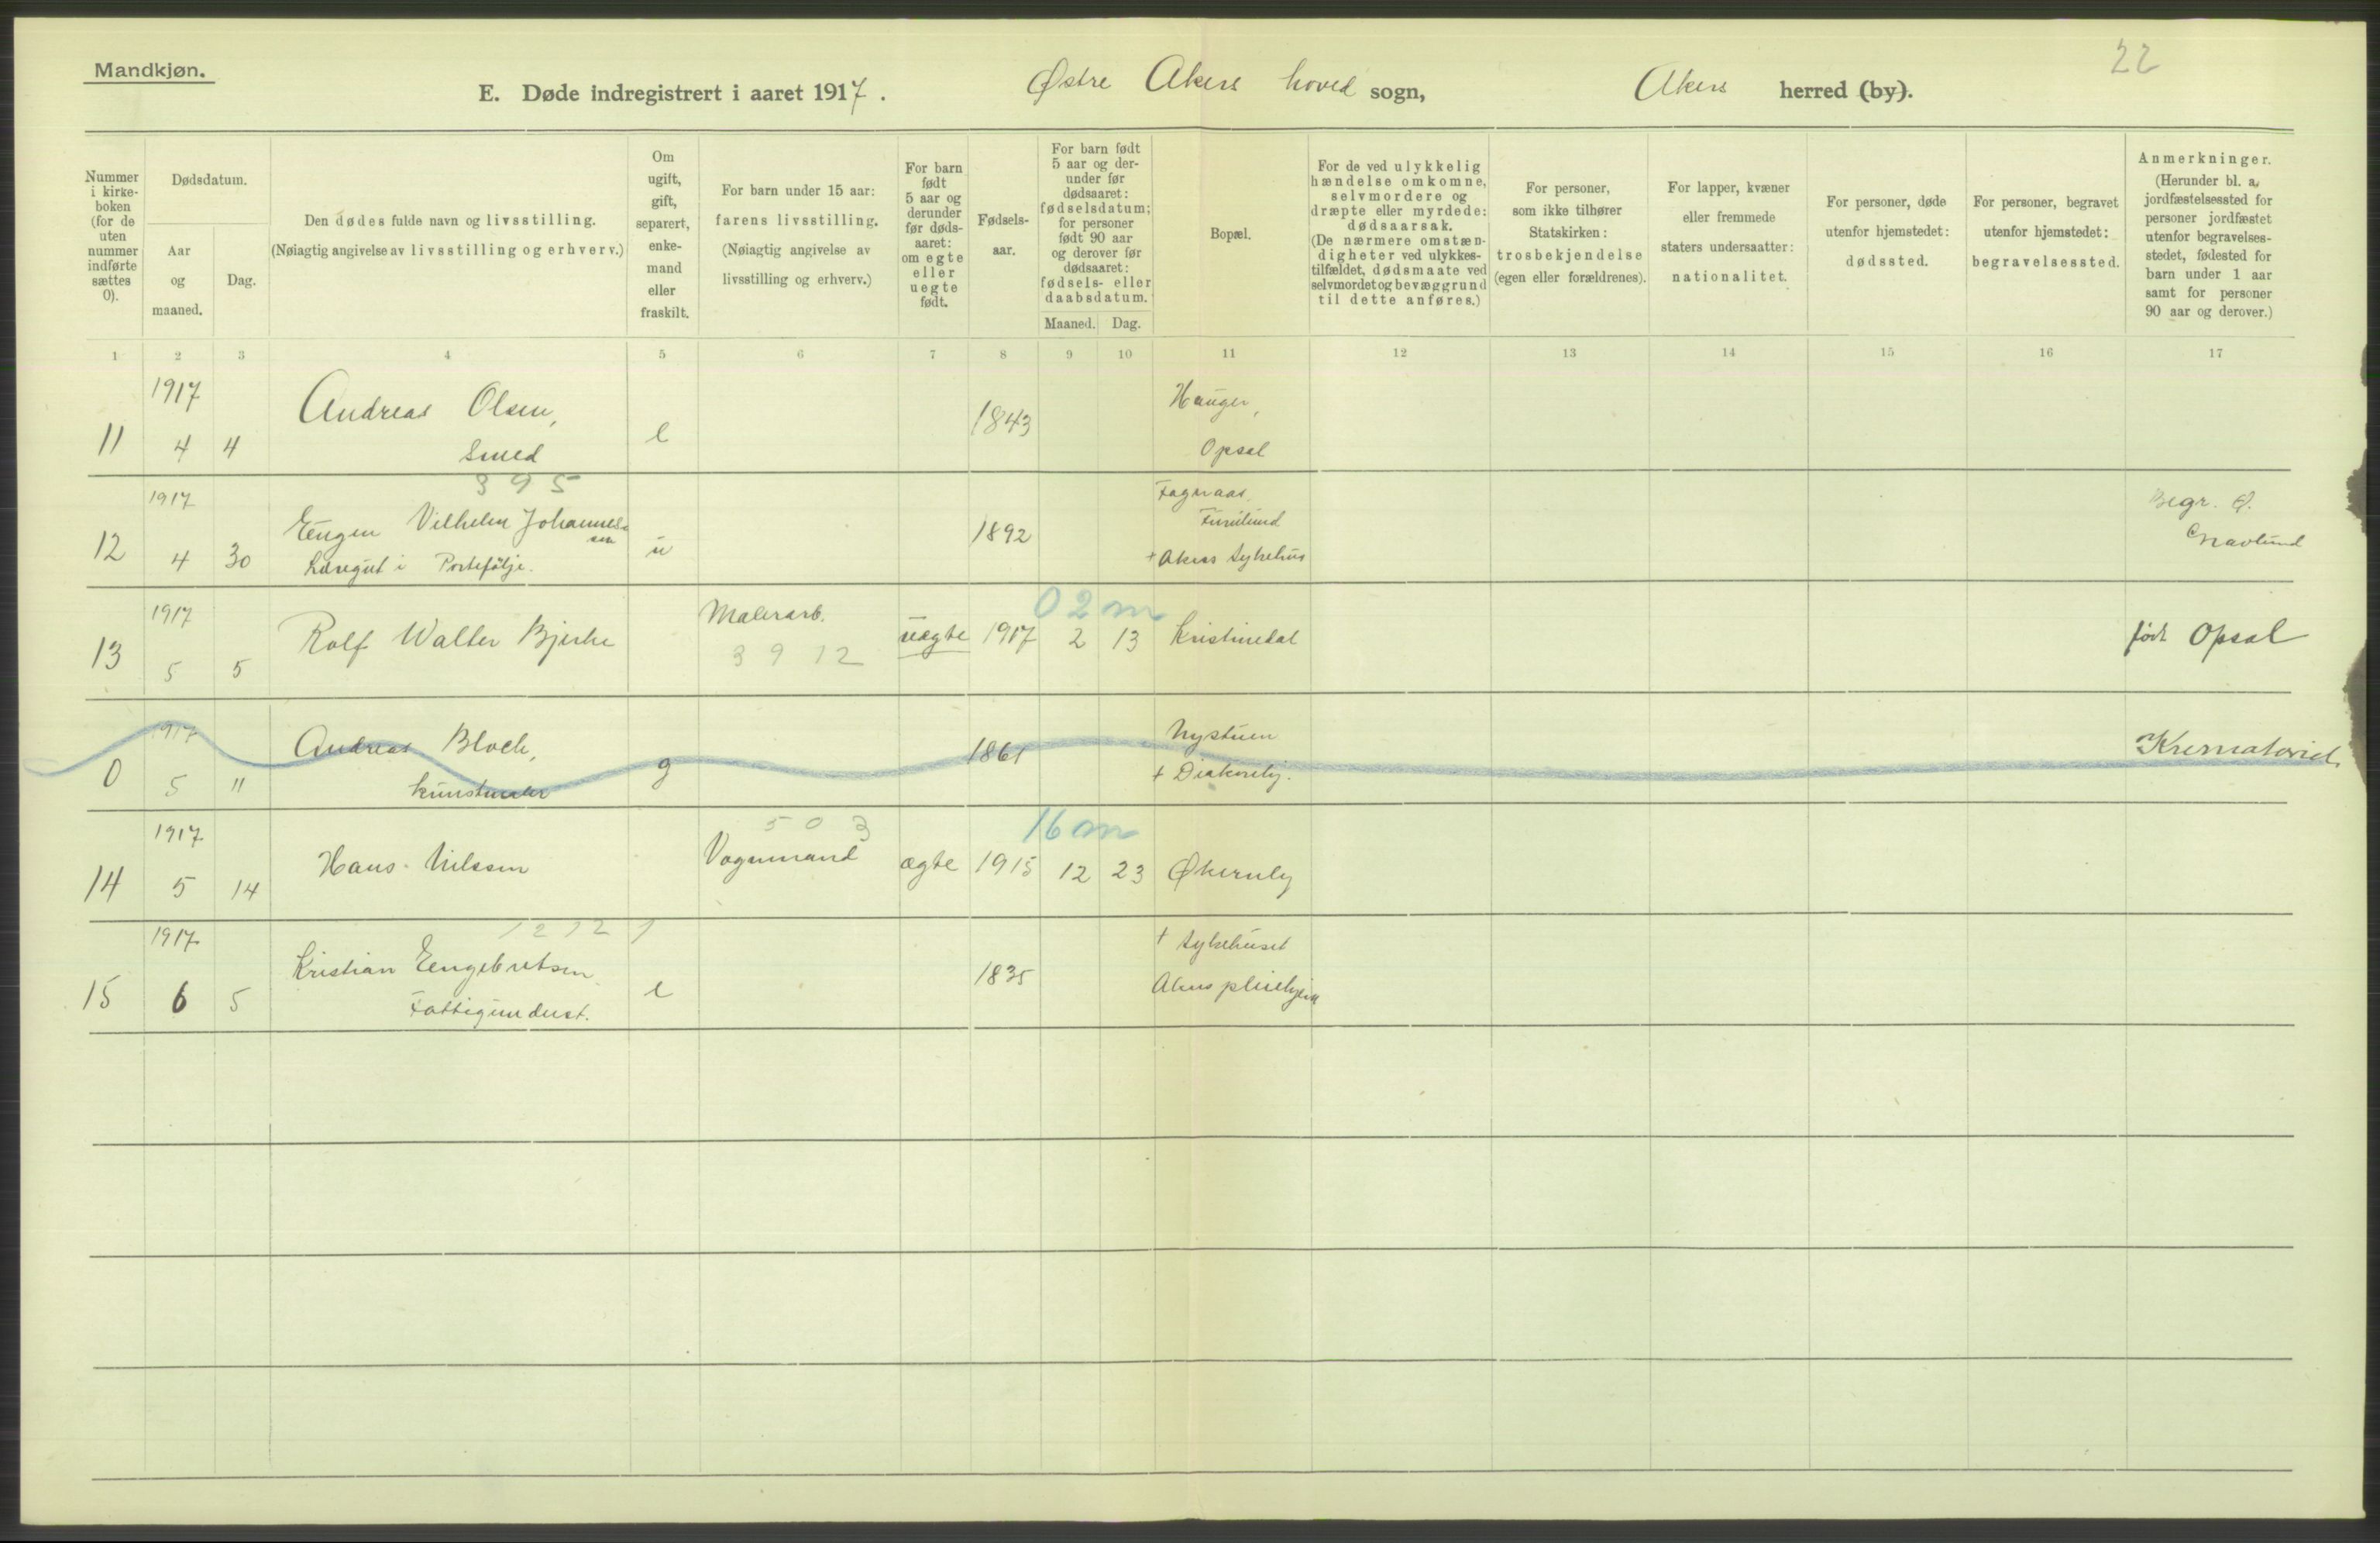 Mandkjøn.
22
E. Døde indregistrert i aaret 1917. Østre Akers hoved sogn, Akers herred (by).
Nummer
i kirke-
boken
(for de
uten
nummer
indførte
sættes
0).
Dødsdatum.
Aar
og
maaned.
Dag.
Den dødes fulde navn og livsstilling.
(Nøiagtig angivelse av livsstilling og erhverv.)
Om
ugift,
gift,
separert,
enke-
mand
eller
fraskilt.
For barn under 15 aar:
farens livsstilling.
(Nøiagtig angivelse av
livsstilling og erhverv.)
For barn
født
5 aar og
derunder
før døds-
aaret:
om egte
eller
uegte
født.
Fødsels-
aar.
For barn født
5 aar og der-
under før
dødsaaret:
fødselsdatum;
for personer
født 90 aar
og derover før
dødsaaret:
fødsels- eller
daabsdatum.
Maaned. Dag.
Bopæl.
For de ved ulykkelig
hændelse omkomne,
selvmordere og
dræpte eller myrdede:
dødsaarsak.
(De nærmere omstæn-
digheter ved ulykkes-
tilfældet, dødsmaate ved
selvmordet og bevæggrund
til dette anføres.)
For personer,
som ikke tilhører
Statskirken:
trosbekjendelse
(egen eller forældrenes).
For lapper, kvæner
eller fremmede
staters undersaatter:
nationalitet.
For personer, døde
utenfor hjemstedet:
dødssted.
For personer, begravet
utenfor hjemstedet:
begravelsessted.
Anmerkninger.
(Herunder bl. a.
jordfæstelsessted for
personer jordfæstet
utenfor begravelses-
stedet, fødested for
barn under 1 aar
samt for personer
90 aar og derover.)
1 2 3 4 5 6 7 8 9 10 11 12 13 14 15 16 17
1917 Andreas Olsen, Hauger,
11 4 4 Smed e 1843 Opsal
3 9 5
1917 Eugen Vilhelm Johannes- Fageraas
sen 1892 Furulund
12 4 30 Læregut i Portefølje. u + Akers Sykehus
Begr. Ø.
Gravlund
1917 Malerarb. 0 2 m
13 5 5 Rolf Walter Bjerke 3 9 12 uegte 1917 2 13 Kristinedal født Opsal
1917 Andreas Bloch, Nystuen
0 5 11 kunstmaler g 1861 + Diakonhj. Krematoriet.
1917 5 0 3 16 m
14 5 14 Hans Nilssen Vognmand ægte 1915 12 23 Økernly
1 2 12 1
1917 Kristian Eengebretsen + Sykehuset
15 6 5 Fattigunderst. e 1835 Akers pleiehjem